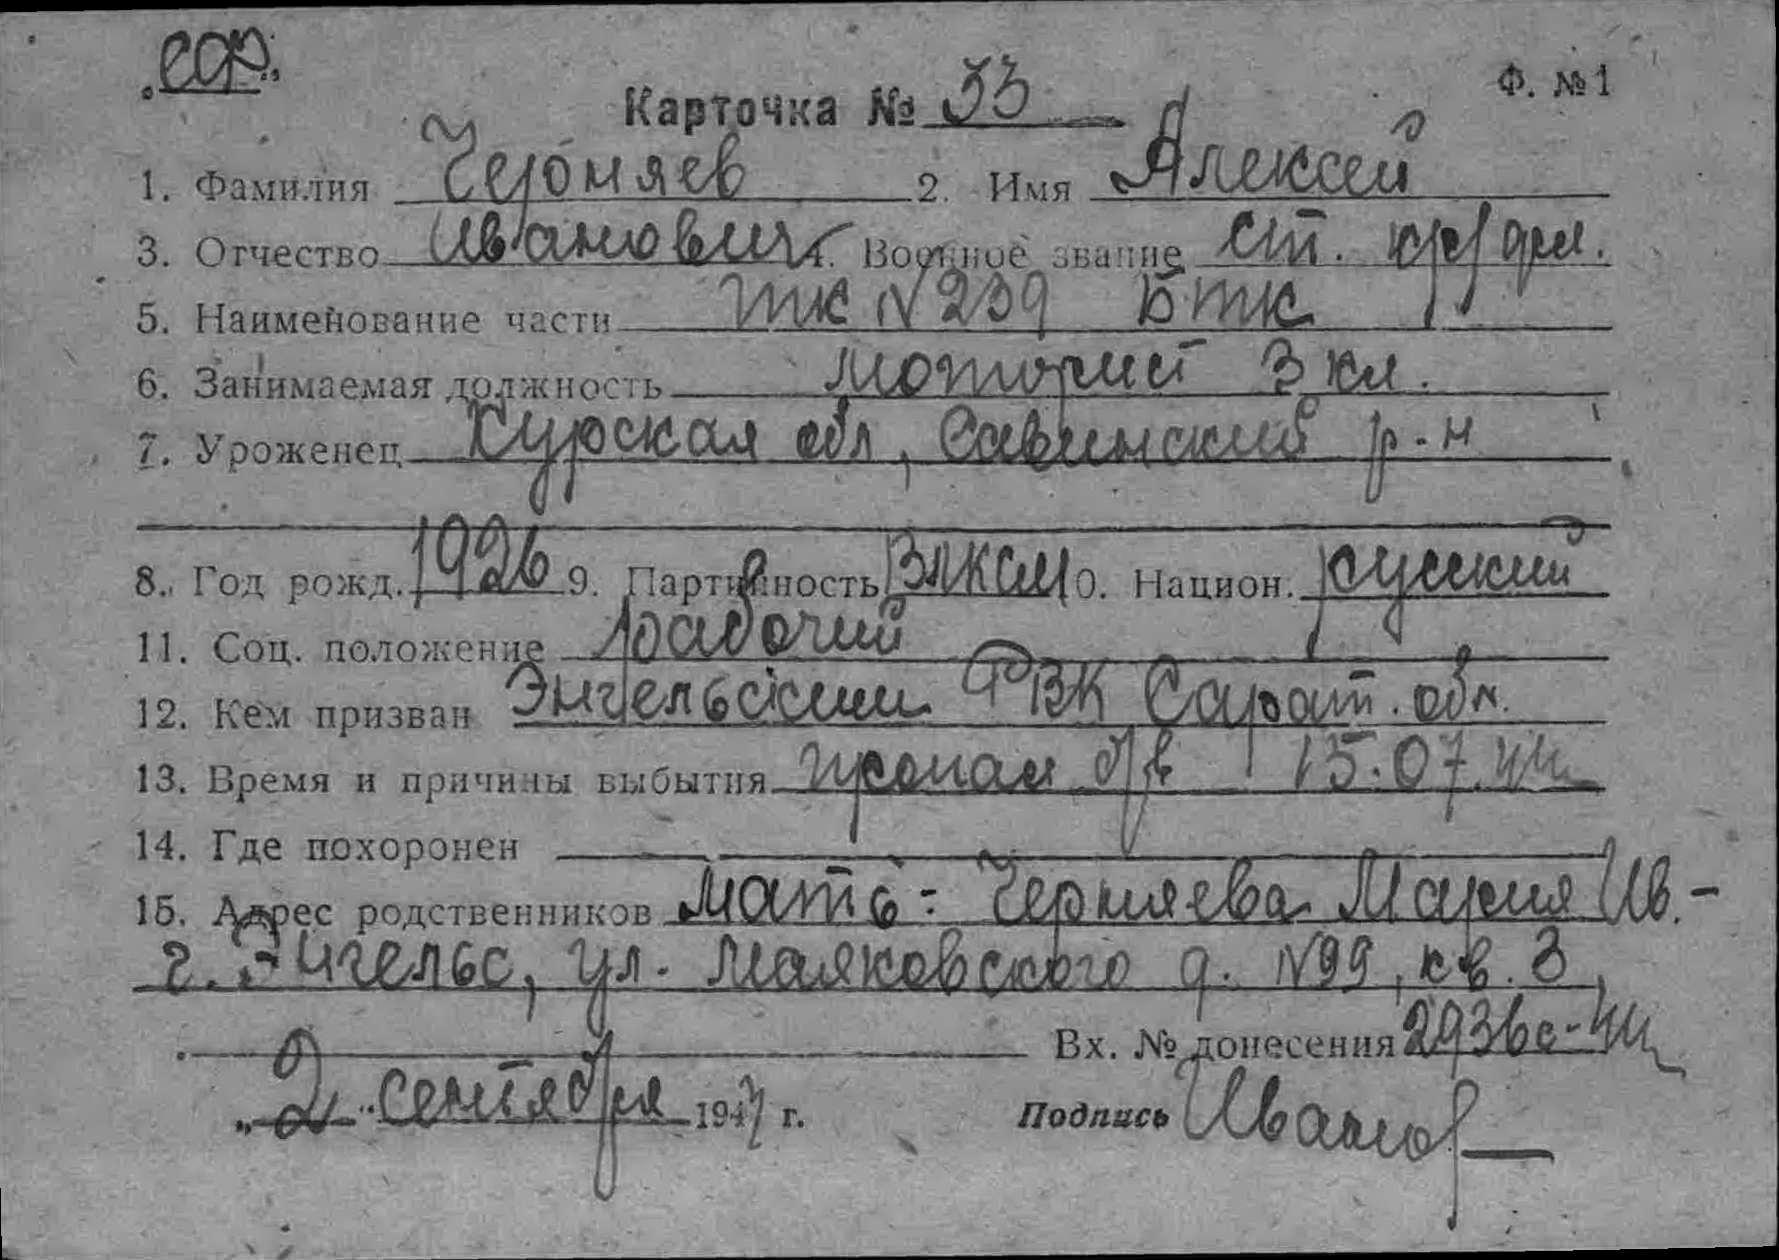 "СФ"
Ф. №1
Карточка № 33
1. Фамилия Черняев 2. Имя Алексей
3. Отчество Иванович 4. Военное звание ст. кр/фл.
5. Наименование части ТК №239 БТК
6. Занимаемая должность моторист 3 кл.
7. Уроженец Курская обл, Савинский р-н
8. Год рожд. 1926 9. Партийность ВЛКСМ 10. Национ. русский
11. Соц. положение рабочий
12. Кем призван Энгельсским РВК Сарат. обл.
13. Время и причины выбытия пропал б/в 15.07.44
14. Где похоронен
15. Адрес родственников мать: Черняева Мария Ив. -
г. Энгельс, ул. Маяковского д. №99, кв. 3,
Вх. № донесения 2936с-44
"2" сентября 1947 г. Подпись Иванов